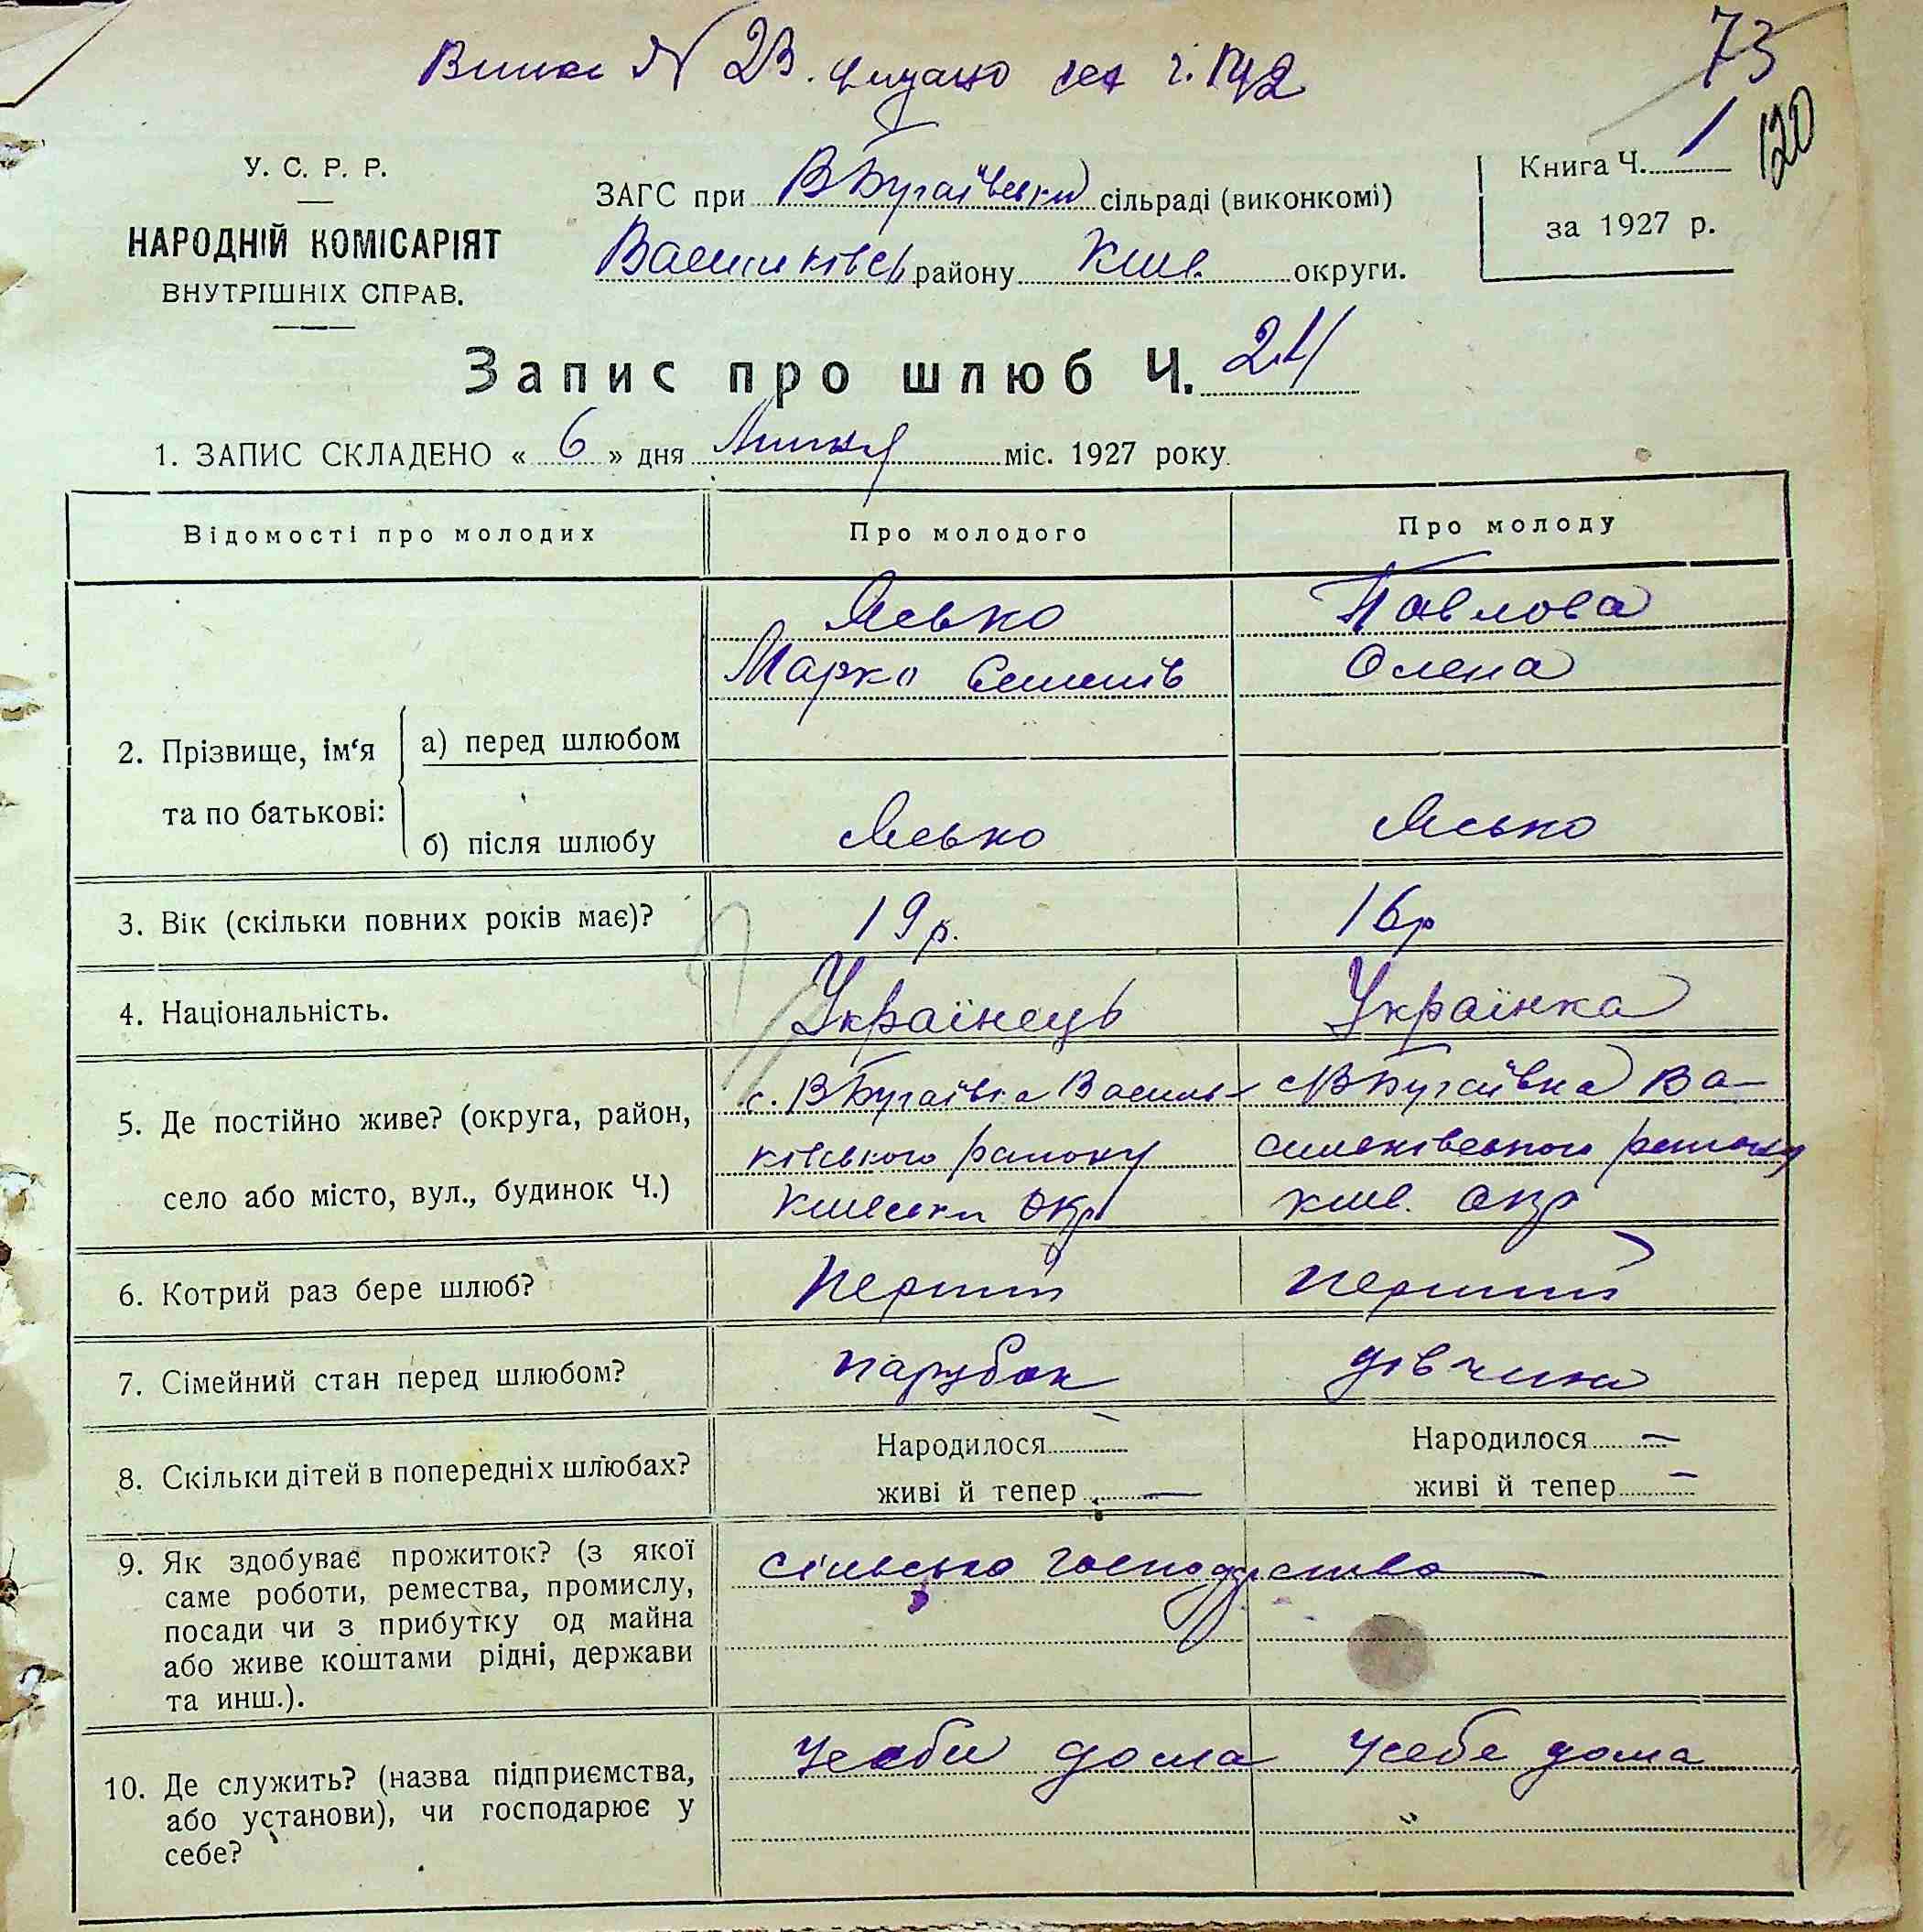 73
120
У. С. Р. Р.
НАРОДНІЙ КОМІСАРІЯТ
ВНУТРІШНІХ СПРАВ.
ЗАГС при В Бугаївській сільраді (виконкомі)
Васильківськ району Київ. округи.
Книга Ч. 1
за 1927 р.
Запис про шлюб Ч. 24
1. ЗАПИС СКЛАДЕНО « 6 » дня Липня міс. 1927 року.
Відомості про молодих
Про молодого
Про молоду
2. Прізвище, ім‘я та по батькові:
а) перед шлюбом
Ясько
Марко Семенів
Павлова
Олена
б) після шлюбу
Ясько
Ясько
3. Вік (скільки повних років має)?
19 р.
16 р
4. Національність.
Українець
Українка
5. Де постійно живе? (округа, район,
село або місто, вул., будинок Ч.)
с. В Бугаївка Василь-
ківського району
Київськи окр
с В Бугаївка Ва-
сильківського району
Київ. окр
6. Котрий раз бере шлюб?
Перший
перший
7. Сімейний стан перед шлюбом?
парубок
дівчина
8. Скільки дітей в попередніх шлюбах?
Народилося —
живі й тепер —
Народилося —
живі й тепер —
9. Як здобуває прожиток? (з якої
саме роботи, ремества, промислу,
посади чи з прибутку од майна
або живе коштами рідні, держави
та инш.).
сільсько господарство
10. Де служить? (назва підприємства,
або установи), чи господарює у
себе?
Усебе дома
Усебе дома